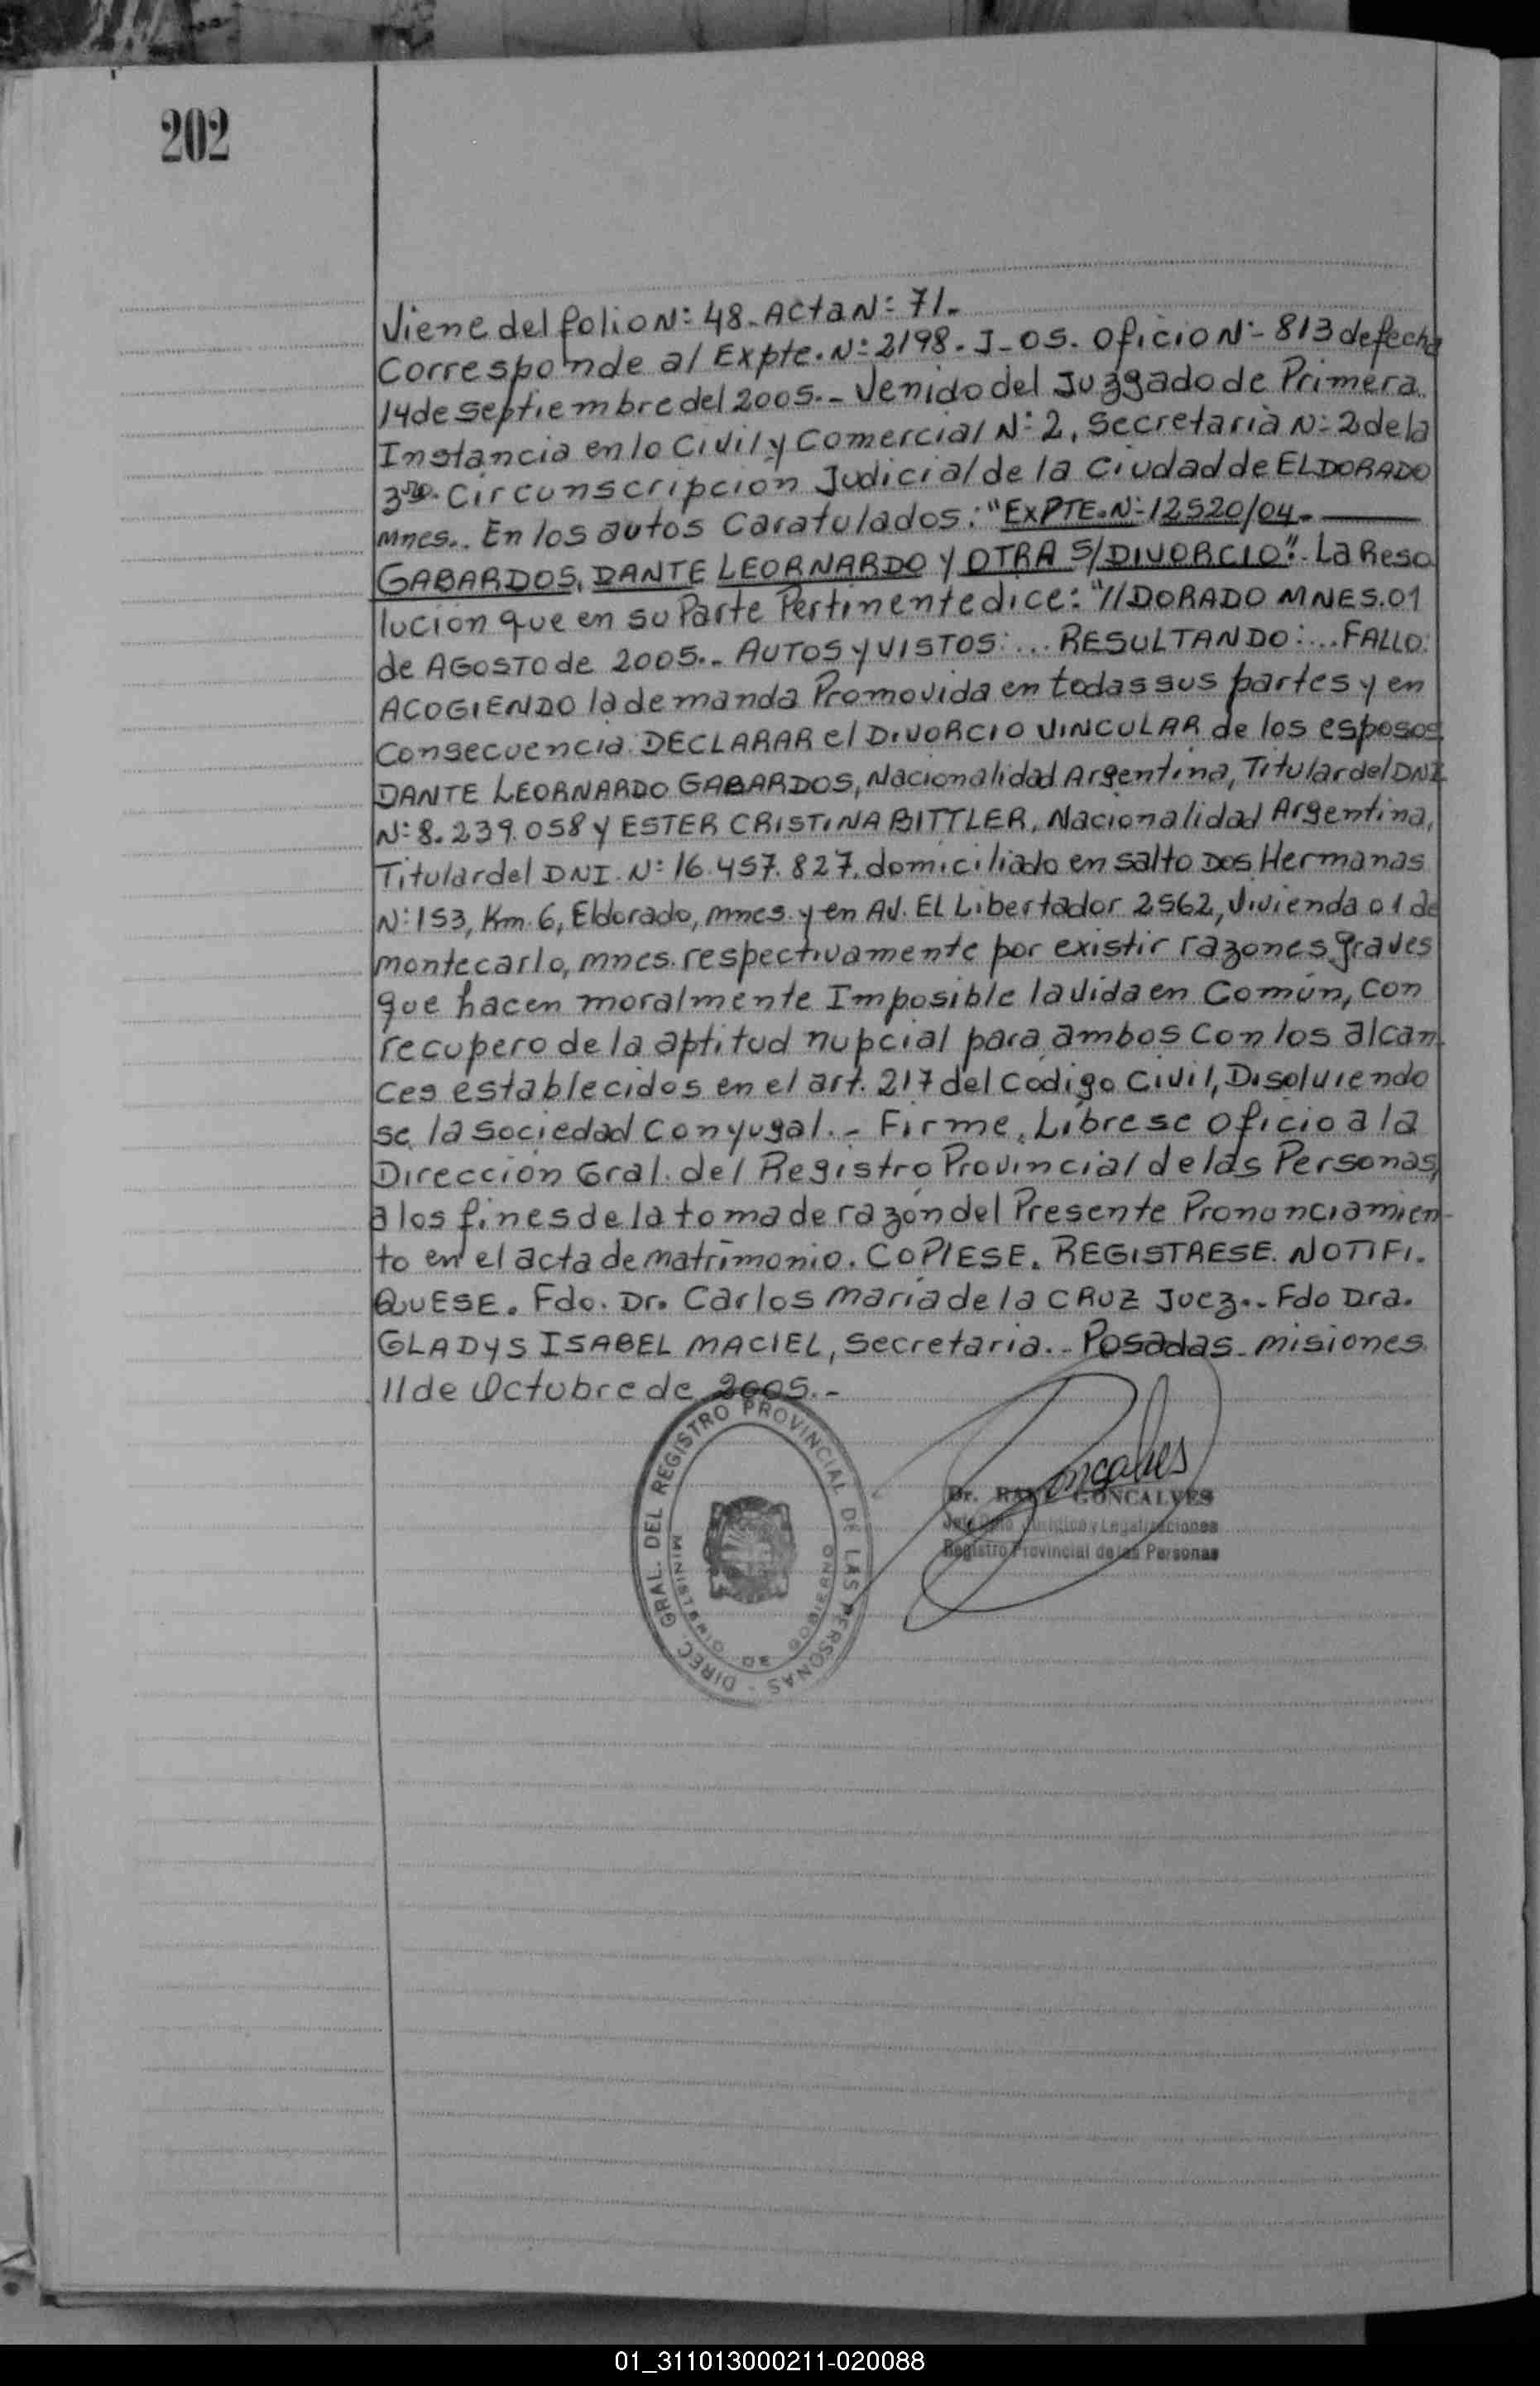 202
Viene del folio N: 48. Acta N: 71.
Corresponde al Expte. N: 2198. J-05. Oficio N: 813 de fecha
14 de septiembre del 2005.- Venido del Juzgado de Primera
Instancia en lo Civil y Comercial N: 2, Secretaria N: 2 de la
3ra. Circunscripción Judicial de la Ciudad de ELDORADO
Mnes.. En los autos Caratulados: "EXPTE. N: 12520/04.
GABARDOS, DANTE LEORNARDO Y OTRA S/DIVORCIO". La Reso
lución que en su Parte Pertinente dice: "//DORADO MNES. 01
de AGOSTO de 2005.. AUTOS Y VISTOS: ... RESULTANDO: ... FALLO:
ACOGIENDO la demanda Promovida en todas sus partes y en
Consecuencia DECLARAR el DIVORCIO VINCULAR de los esposos
DANTE LEORNARDO GABARDOS, Nacionalidad Argentina, Titular del DNI
N: 8.239.058 y ESTER CRISTINA BITTLER, Nacionalidad Argentina,
Titular del DNI. N: 16.457.827. domiciliado en salto Dos Hermanas
N: 153, Km. 6, Eldorado, mnes. y en Av. EL Libertador 2562, Vivienda 01 de
montecarlo, mnes. respectivamente por existir razones graves
que hacen moralmente Imposible la vida en Común, con
recupero de la aptitud nupcial para ambos con los alcan
ces establecidos en el art. 217 del Código Civil, Disolviendo
se la sociedad conyugal. - Firme, Líbrese oficio a la
Dirección Gral. del Registro Provincial de las Personas,
a los fines de la toma de razón del Presente Pronunciamien-
to en el acta de matrimonio. COPIESE. REGISTRESE. NOTIFI.
QUESE. Fdo. Dr. Carlos María de la CRUZ Juez.. Fdo Dra.
GLADYS ISABEL MACIEL, Secretaria.. Posadas. misiones
11 de Octubre de 2005.-
DIREC. GRAL. DEL REGISTRO PROVINCIAL DE LAS PERSONAS -
MINISTERIO DE GOBIERNO
Goncalves
Dr. GONCALVES
Jurídico y Legalizaciones
Registro Provincial de las Personas
01_311013000211-020088